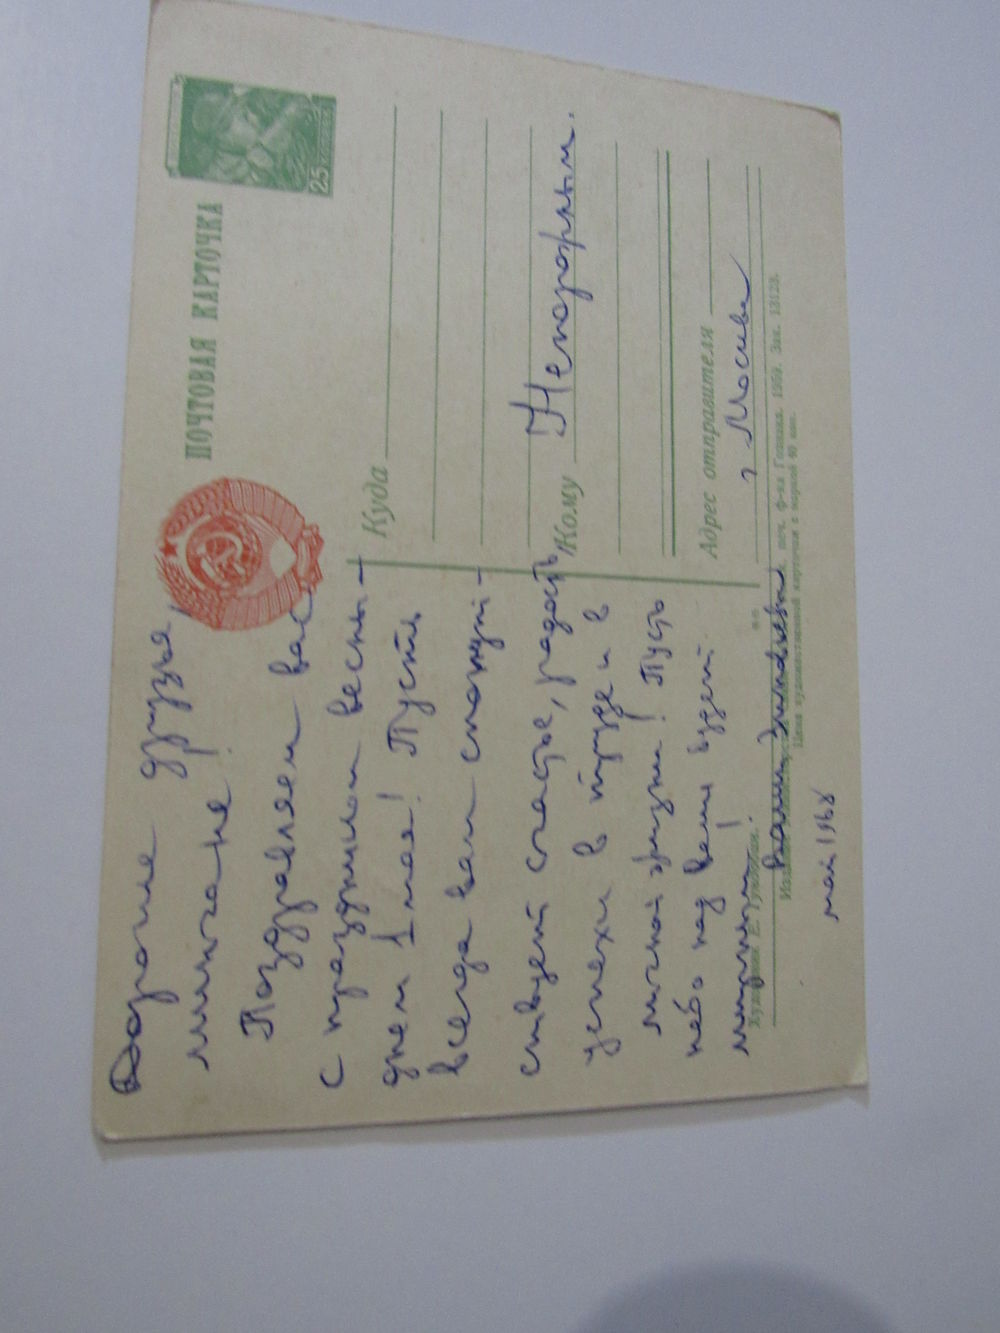 Дорогие друзья,
минчане!
Поздравляем вас
с праздником весны –
днем 1 мая! Пусть
всегда вам сопут-
ствует счастье, радость,
успехи в труде и в
личной жизни! Пусть
небо над вами будет
мирным!
Ваши Зиновьевы
май 1968
ПОЧТОВАЯ КАРТОЧКА
25
Куда
Кому Непорожным.
Адрес отправителя
г Москва
Художник Е. Гундобин.
Цена художественной карточки с маркой 40 коп.